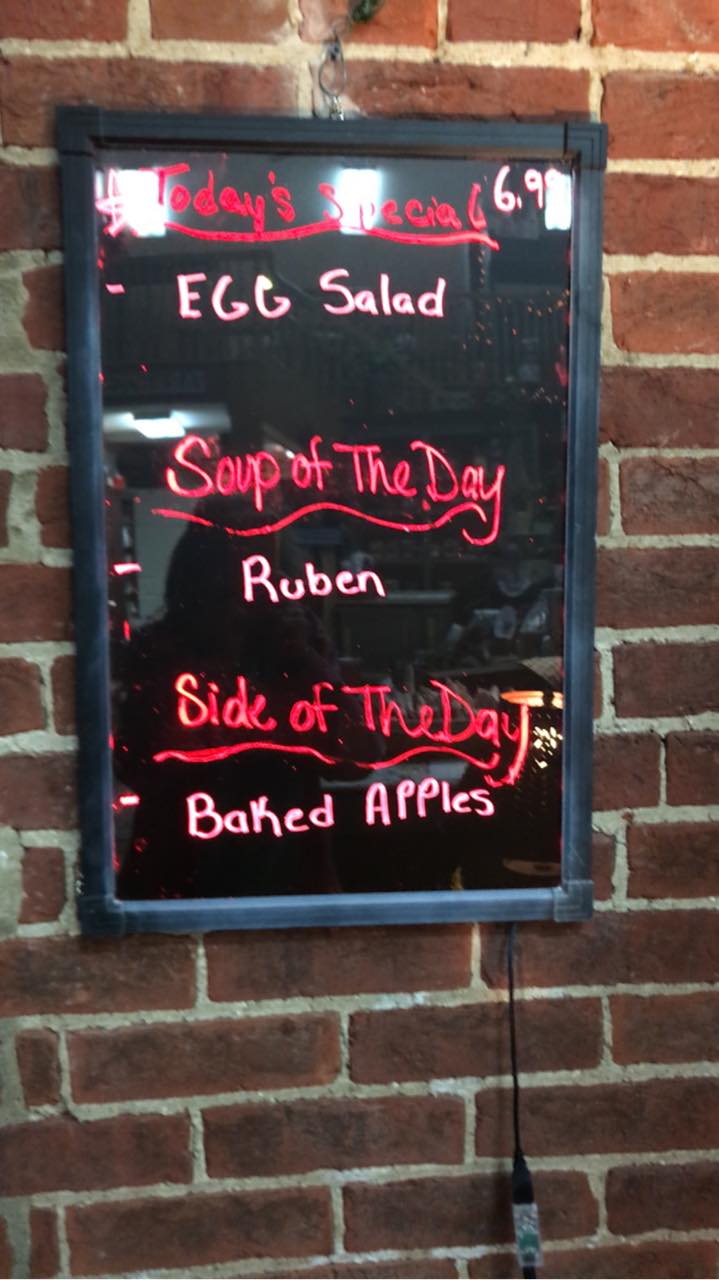 Today's Special 6.99
- EGG Salad
Soup of The Day
- Ruben
Side of The Day
- Baked Apples